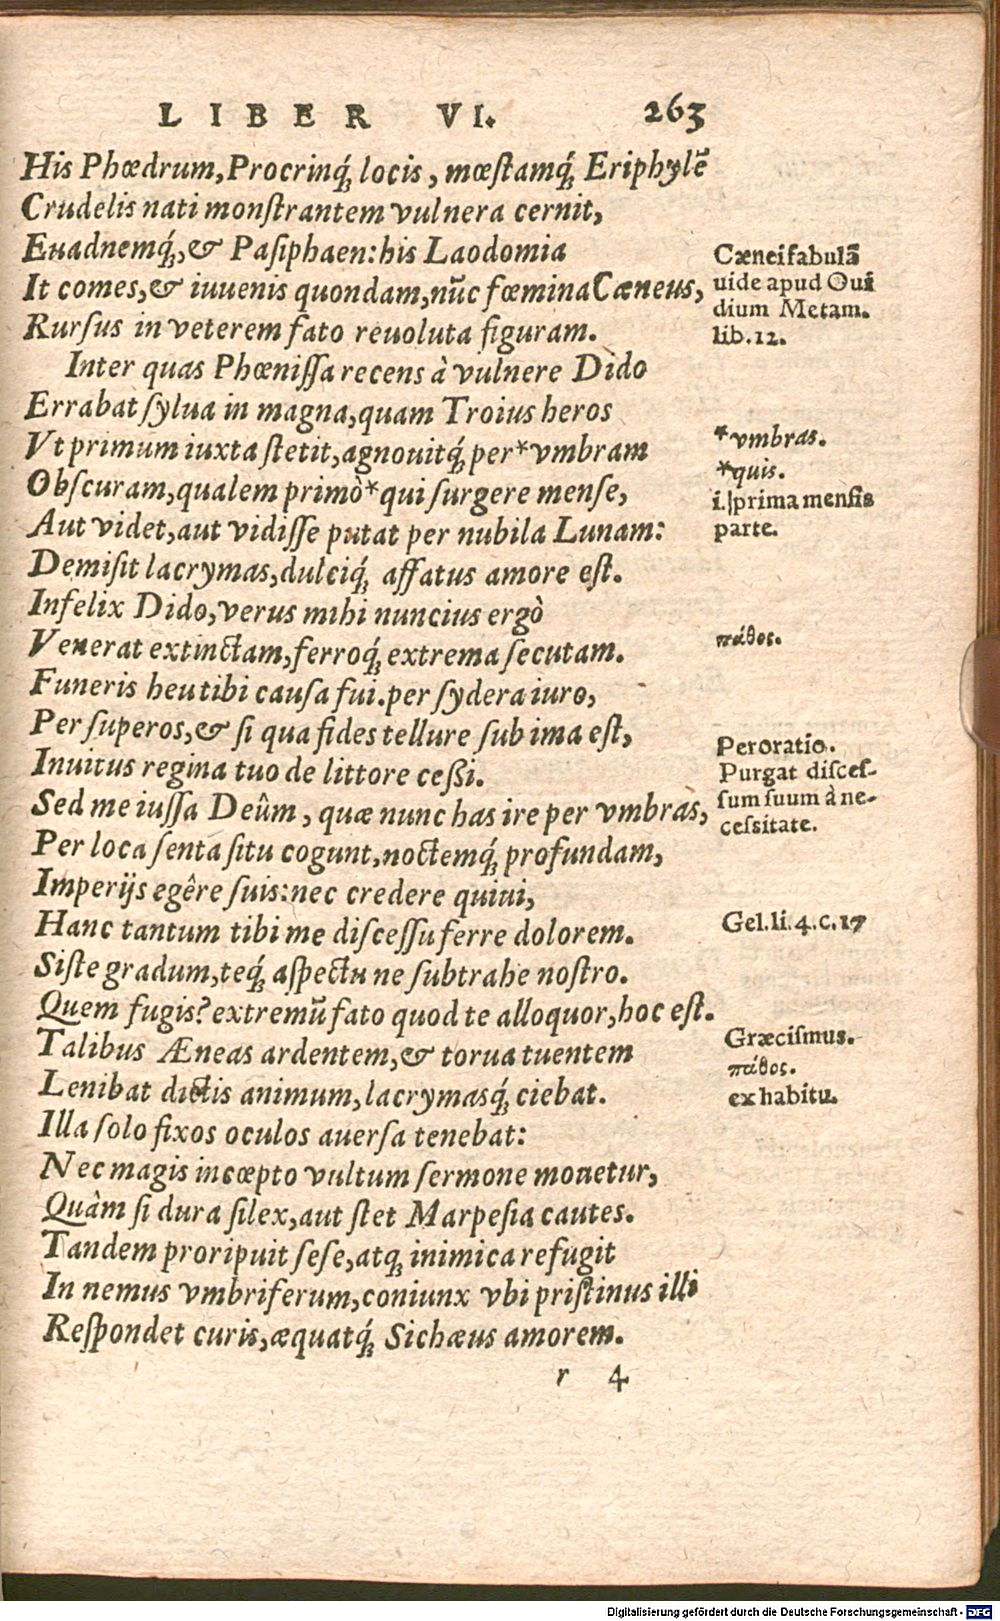 LIBER VI. 263
His Phœdrum, Procrinq́; locis, mœſtamq́; Eriphylē
Crudelis nati monſtrantem vulnera cernit,
Euadnemq́;, & Paſiphaen: his Laodomia
It comes, & iuuenis quondam, nūc fœmina Cæneus,
Rurſus in veterem fato reuoluta figuram.
Cænei fabulā
uide apud Oui
dium Metam.
lib. 12.
Inter quas Phœniſſa recens à vulnere Dido
Errabat ſylua in magna, quam Troius heros
Vt primum iuxta ſtetit, agnouitq́; per *vmbram
*vmbras.
Obſcuram, qualem primò *qui ſurgere menſe,
*quis.
i. prima menſis
parte.
Aut videt, aut vidiſſe putat per nubila Lunam:
Demiſit lacrymas, dulciq́; affatus amore eſt.
Infelix Dido, verus mihi nuncius ergò
Venerat extinctam, ferroq́; extrema ſecutam.
πάθος.
Funeris heu tibi cauſa fui. per ſydera iuro,
Per ſuperos, & ſi qua fides tellure ſub ima eſt,
Inuitus regina tuo de littore ceßi.
Peroratio.
Purgat diſceſ-
ſum ſuum à ne-
ceſsitate.
Sed me iuſſa Deûm, quæ nunc has ire per vmbras,
Per loca ſenta ſitu cogunt, noctemq́; profundam,
Imperijs egêre ſuis: nec credere quiui,
Hanc tantum tibi me diſceſſu ferre dolorem.
Gel. li. 4. c. 17
Siſte gradum, teq́; aſpectu ne ſubtrahe noſtro.
Quem fugis? extremū fato quod te alloquor, hoc eſt.
Talibus Æneas ardentem, & torua tuentem
Græciſmus.
πάθος.
ex habitu.
Lenibat dictis animum, lacrymasq́; ciebat.
Illa ſolo fixos oculos auerſa tenebat:
Nec magis incœpto vultum ſermone mouetur,
Quàm ſi dura ſilex, aut ſtet Marpeſia cautes.
Tandem proripuit ſeſe, atq; inimica refugit
In nemus vmbriferum, coniunx vbi priſtinus illi
Reſpondet curis, æquatq́; Sichæus amorem.
r 4
Digitalisierung gefördert durch die Deutsche Forschungsgemeinschaft - DFG